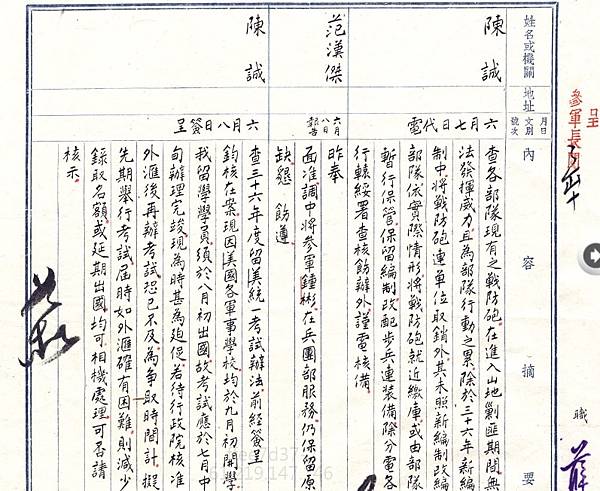 呈
參軍長
職
薛
姓名或機關
地址
月日
文別
號次
內容摘要
陳誠
六月七日代電
查各部隊現有之戰防砲在進入山地剿匪期間無
法發揮威力且為部隊行動之累除於三十六年新編
制中將戰防砲連單位取銷外其未照新編制改編
部隊依實際情形將戰防砲就近繳庫或由部隊
暫行保管保留編制改配步兵連裝備除分電各
行轅綏署查核飭辦外謹電核備
范漢傑
六月八日
報告
昨奉
面准調中將參軍鍾彬在兵團部服務仍保留原
缺懇飭遵
陳誠
六月八日簽呈
查三十六年度留美統一考試辦法前經簽呈
鈞核在案現因美國各軍事學校均於九月初開學
我留學學員須於八月初出國故考試應於七月中
旬辦理完竣現為時甚為迫促若待行政院核准
外滙後再辦考試恐已不及為爭取時間計擬
先期舉行考試屆時如外滙確有困難則減少
錄取名額或延期出國均可相機處理可否請
核示